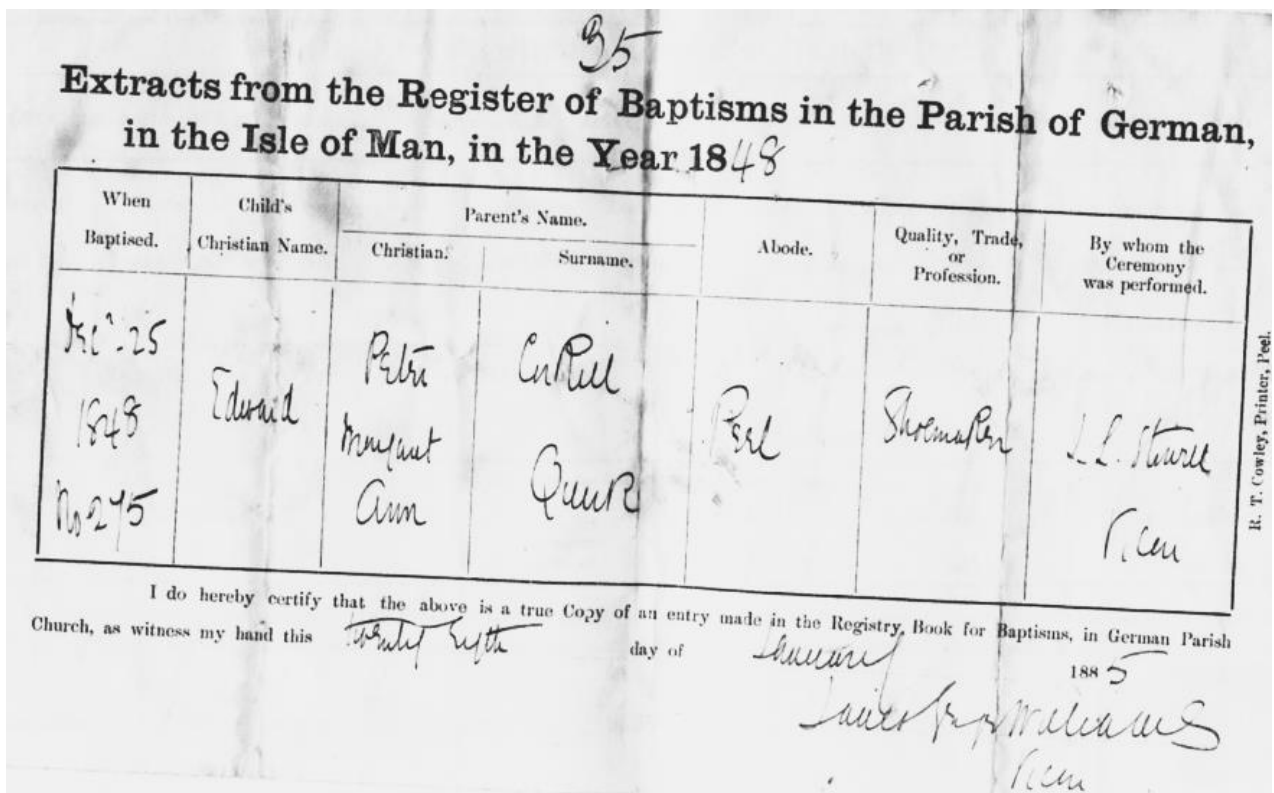 35
Extracts from the Register of Baptisms in the Parish of German,
in the Isle of Man, in the Year 1848
When Baptised.
Child's Christian Name.
Parent's Name.
Christian.
Surname.
Abode.
Quality, Trade, or Profession.
By whom the Ceremony was performed.
Decr. 25
1848
No 275
Edward
Peter
Margaret
Ann
Quirk
Peel
Shoemaker
Vicar
R. T. Cowley, Printer, Peel.
I do hereby certify that the above is a true Copy of an entry made in the Registry Book for Baptisms, in German Parish
Church, as witness my hand this twenty day of January 1885
James Williams
Vicar